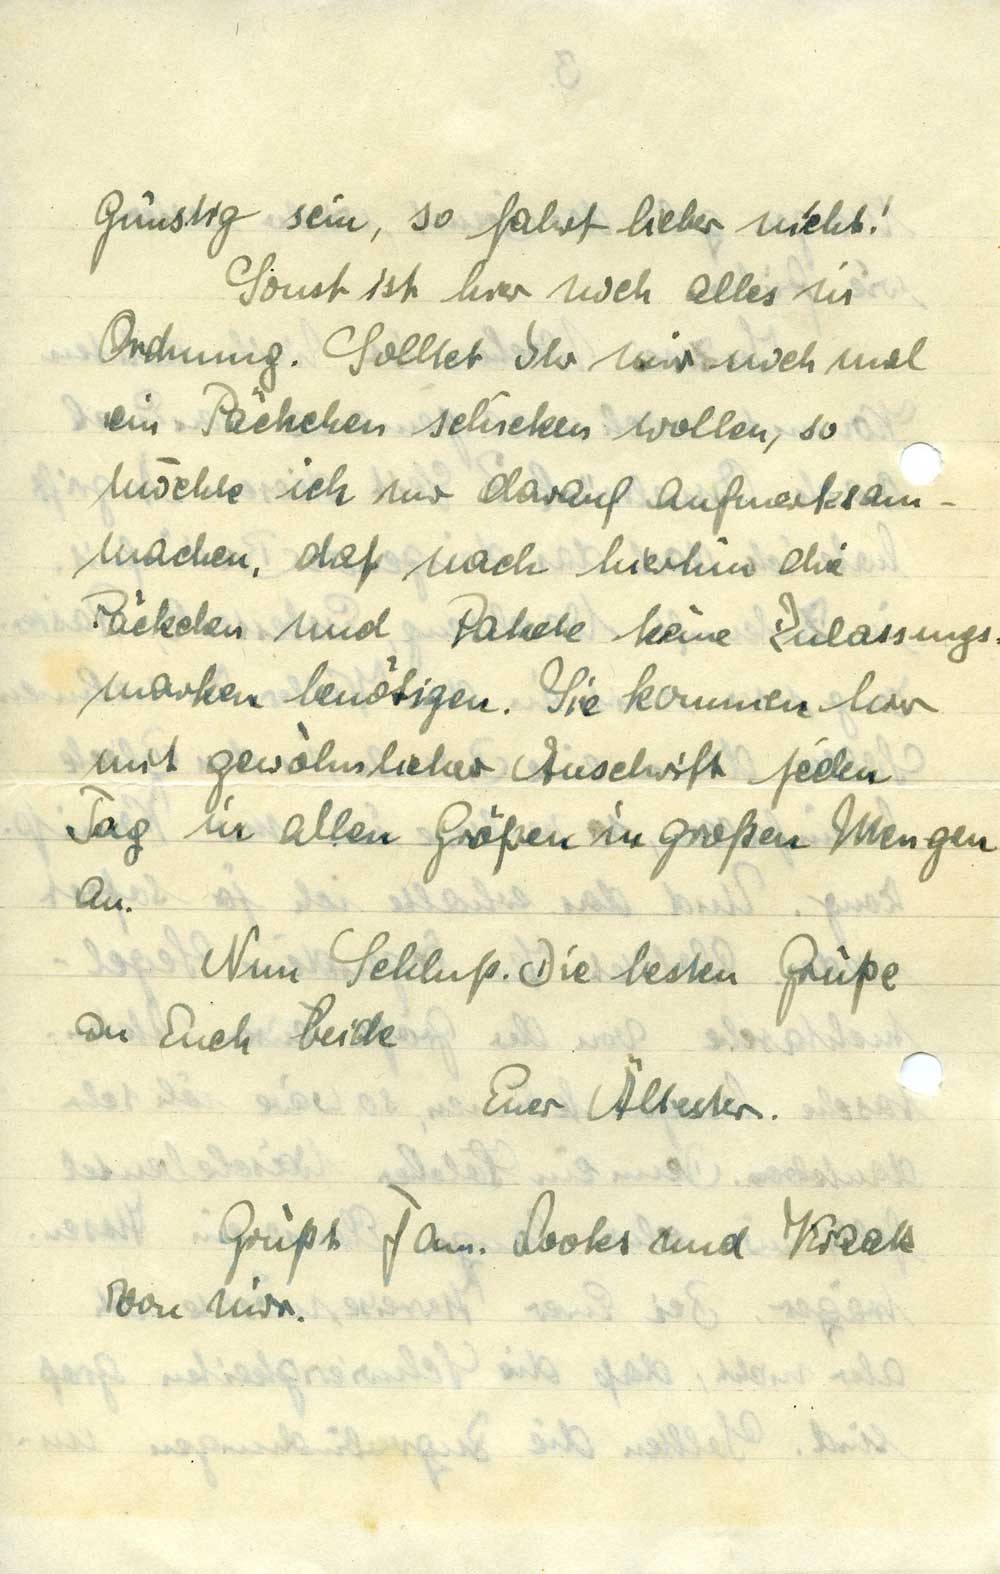 günstig sein, so fahrt lieber nicht!
Sonst ist hier noch alles in
Ordnung. Solltet Ihr mir noch mal
ein Päckchen schicken wollen, so
möchte ich nur darauf aufmerksam-
machen, daß nach hierhin die
Päckchen und Pakete keine Zulassungs-
marken benötigen. Sie kommen hier
mit gewöhnlicher Anschrift jeden
Tag in allen Größen in großen Mengen
an.
Nun Schluß. Die besten Grüße
an Euch beide
Euer Ältester.
Grüßt Fam. und
von mir.